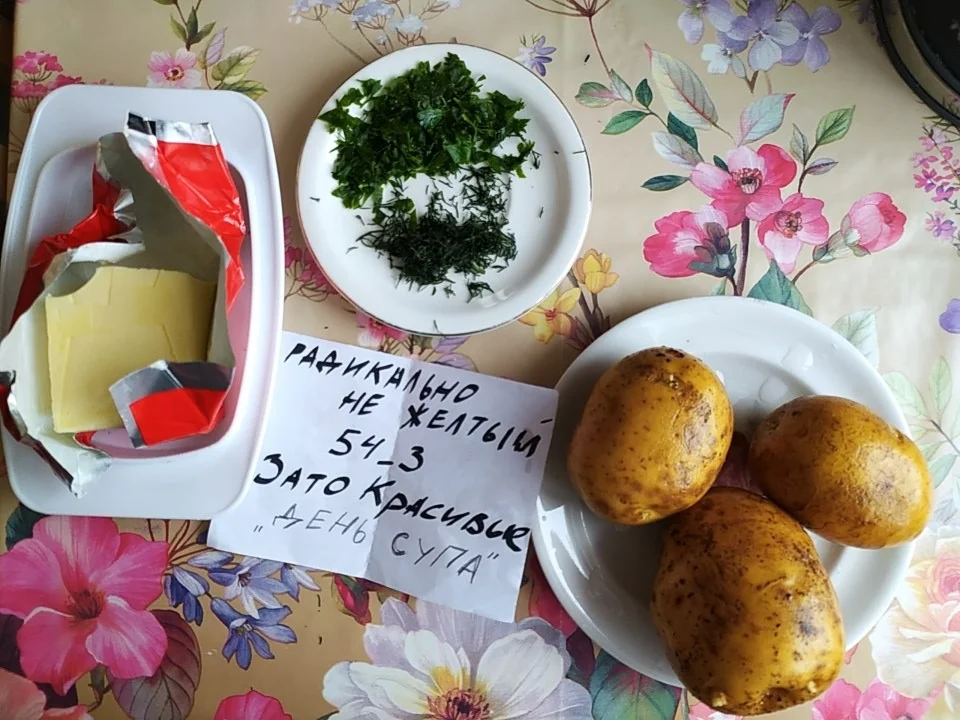 РАДИКАЛЬНО
НЕ ЖЕЛТЫЙ
54-3
ЗАТО КРАСИВЫЕ
„ДЕНЬ СУПА"